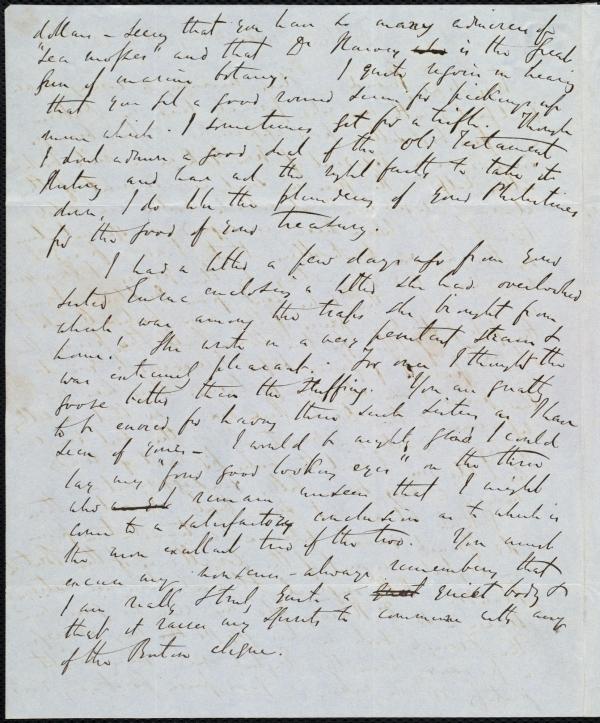 dollars – seeing that you have so many admirers of
"Sea mosses" and that Dr Harvey is the great
gun of marine botany. I quite rejoice in hearing
that you get a good round sum for pickings up
which I sometimes get for a trifle. Though
I dont admire a good deal of the Old Testament
History and have not the right faith to take it
down, I do like the plundering of your Philistines
for the good of your treasury.
I had a letter a few days ago from your
sister Emma enclosing a letter she had overlooked
which was among the traps she brought from
home! She writes in a very penitent strain &
was extremely pleasant. For once I thought the
goose better than the stuffing. You are greatly
to be envied for having three such sisters as I have
seen of yours – I would be mighty glad I could
lay my "fond good looking eyes" on the three
and remain unseen that I might
come to a satisfactory conclusion as to which is
the more exalted trio of the two. You must
excuse my nonsense – always remembering that
I am really quite a quiet body &
that it raises my spirits to commune with any
of the Boston clique.